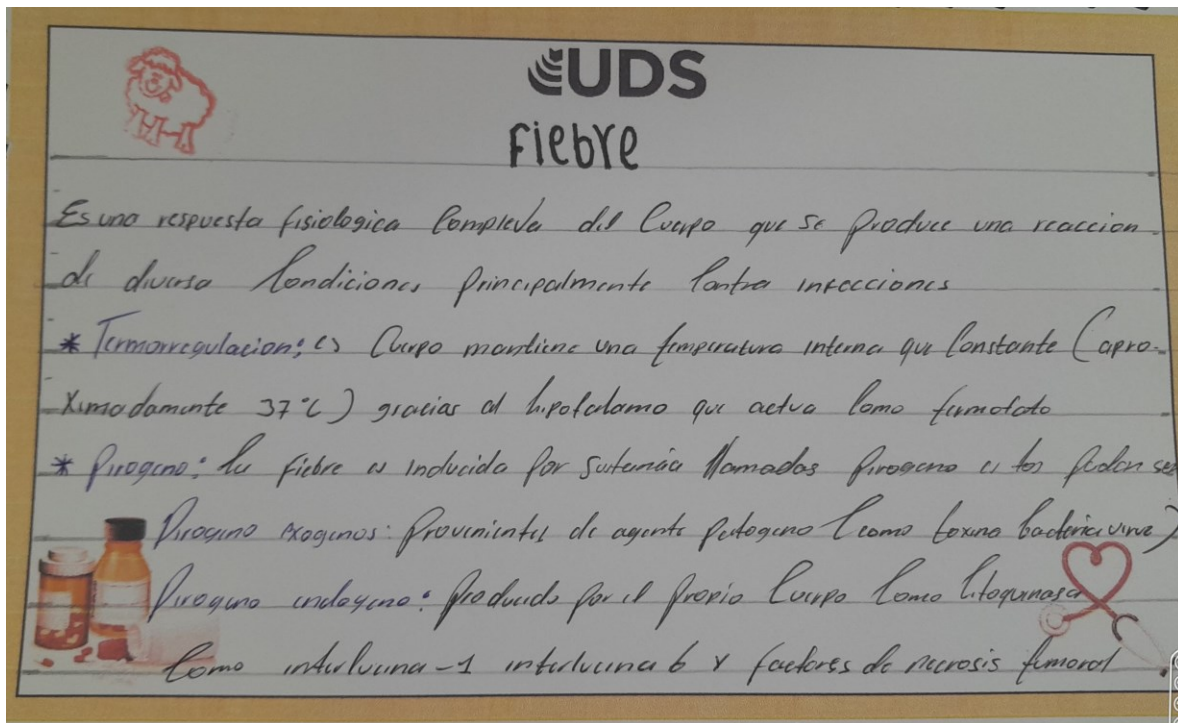 UDS
Fiebre
Es una respuesta fisiologica Compleja del Cuerpo que se produce una reaccion
de diversa Condiciones principalmente Contra infecciones
* Termorregulacion: es Cuerpo mantiene una temperatura interna que Constante (apro-
ximadamente 37°C) gracias al hipotalamo que actua Como
* Pirogeno: la fiebre es inducida por llamados Pirogeno es tos pueden ser
Pirogeno exogenos: Provenientes de agente Patogeno (como toxina bacteria virus)
Pirogeno endogeno: producido por el propio Cuerpo Como
Como interlucina-1 interlucina 6 y factores de necrosis tumoral